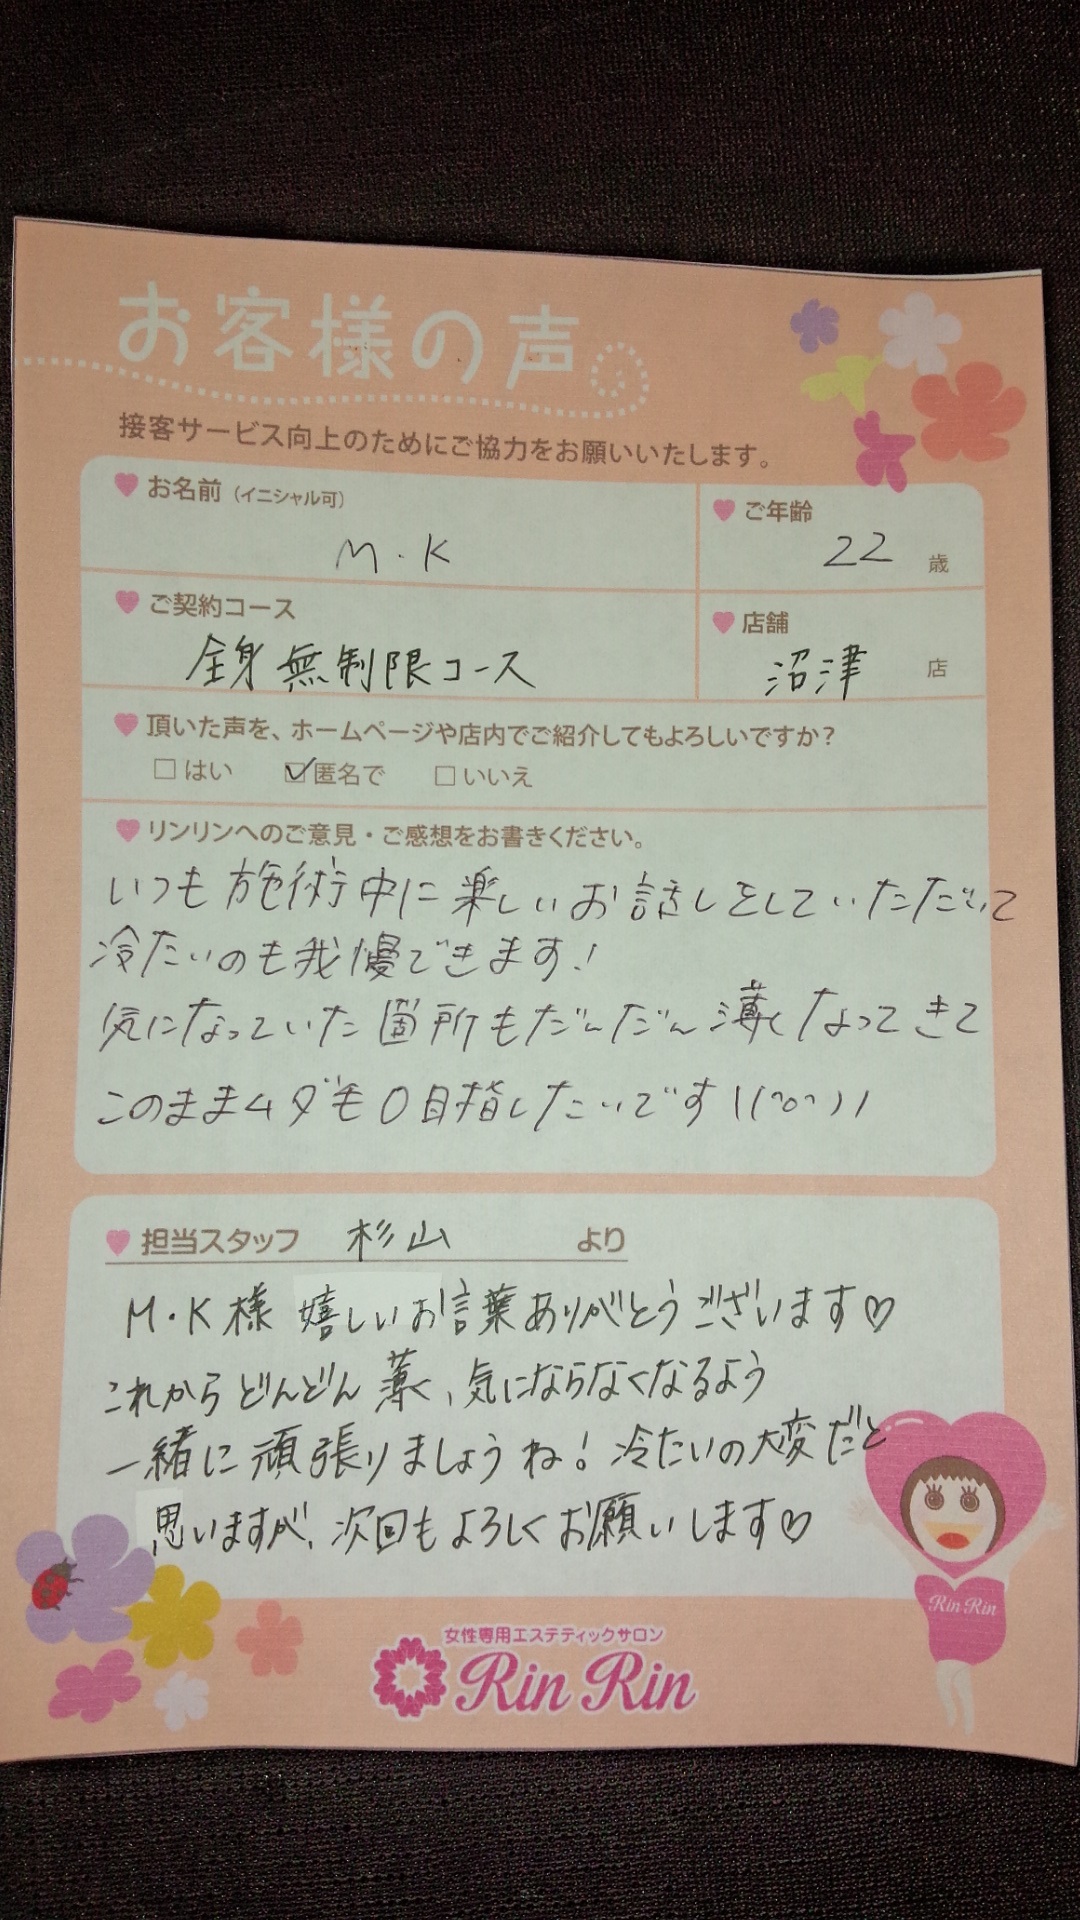 お客様の声
接客サービス向上のためにご協力をお願いいたします。
お名前(イニシャル可)
M・K
ご年齢
22 歳
ご契約コース
全身無制限コース
店舗
沼津 店
頂いた声を、ホームページや店内でご紹介してもよろしいですか?
□はい ☑匿名で □いいえ
リンリンへのご意見・ご感想をお書きください。
いつも施術中に楽しいお話しをしていただいて
冷たいのも我慢できます!
気になっていた箇所もだんだん薄くなってきて
このままムダ毛0目指したいです!(^o^)!
担当スタッフ 杉山 より
M・K様 嬉しいお言葉ありがとうございます♡
これからどんどん薄く、気にならなくなるよう
一緒に頑張りましょうね!冷たいの大変だと
思いますが、次回もよろしくお願いします♡
Rin Rin
女性専用エステティックサロン
Rin Rin